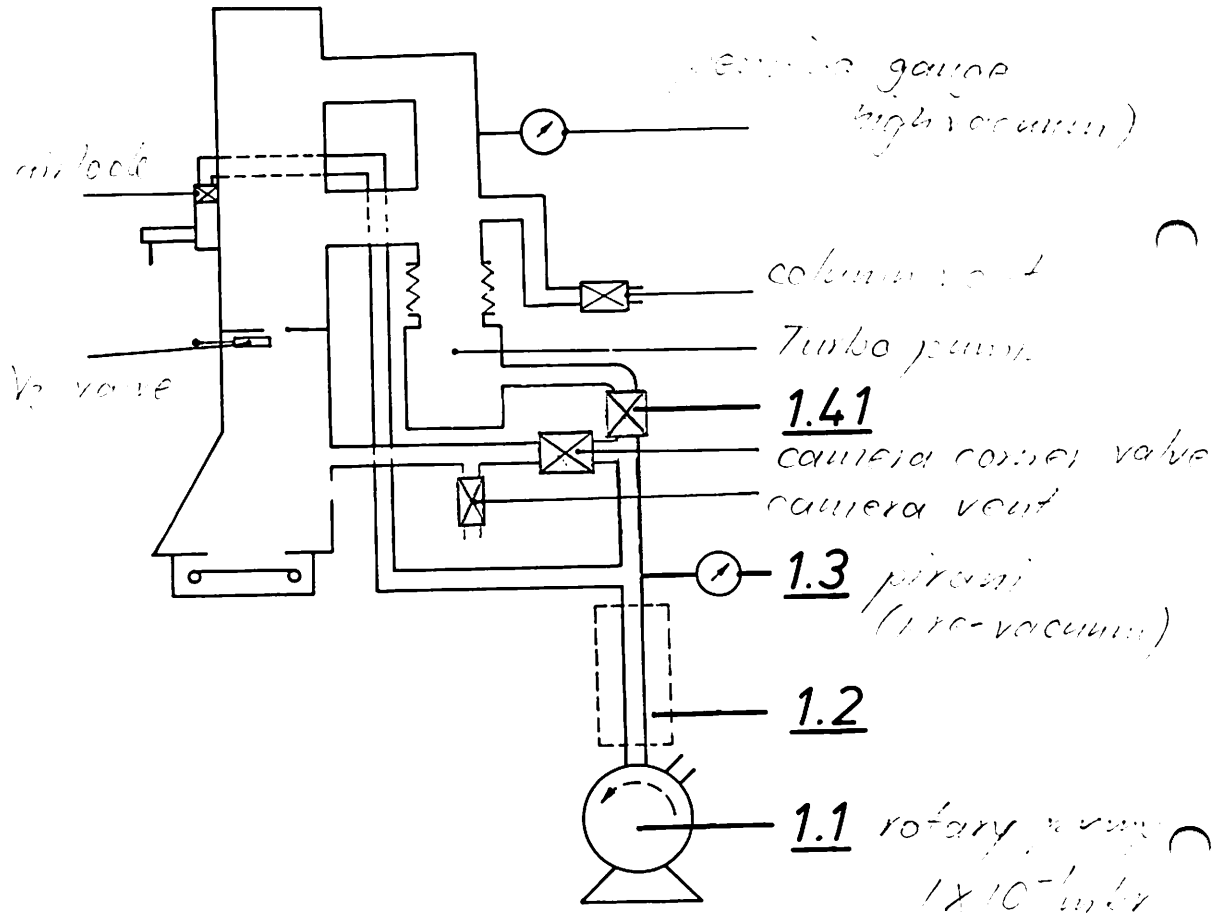 gauge
high vacuum)
air lock
column vent
Turbo pump
V2 valve
1.41
camera corner valve
camera vent
1.3 pirani
(pre-vacuum)
1.2
1.1 rotary pump